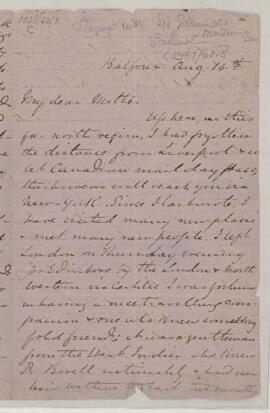 Balfour Aug 16th
My dear Mother
Up here, in this
far north region, I had forgotten
the distance from Liverpool &
let Canadian mail day pass,
this however will reach you via
New York. Since I last wrote, I
have visited many new places
& met many new people. I left
London on Thursday evening
for Edinboro by the London & North
Western via Carlisle I was fortunate
in having a nice travelling com-
panion & one who knew something
of old friends; he was a gentleman
from the West Indies who knew
Dr Bovell intimately & had
him within
months